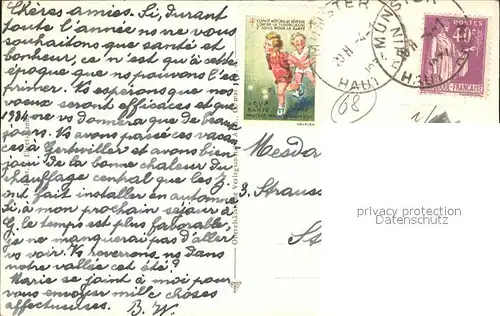 Chères amies. Si, durant
toute l'année ns ne vous
souhaitons que santé et
bonheur, ce n'est qu'à cette
époque que ns pouvons l'ex
primer. Ns espérons que nos
voeux seront efficaces et que
1934 ne vs donnera que de beaux
jours. Vs avons passé ces vacan
ces à Gertwiller et avons bien
joui de la bonne chaleur du
chauffage central que les J.
ont fait installer en automne
Si, à mon prochain séjour à
G. le temps est plus favorable,
je ne manquerai pas d'aller
vs voir. Vs reverrons-ns dans
notre vallée cet été?
Marie se joint à moi pour
vous envoyer mille choses
affectueuses. B. W.
COMITÉ NATIONAL DE DÉFENSE
CONTRE LA TUBERCULOSE
SANTÉ
MUNSTER
HAUT-RHIN
40c
68
Mesda
3. Strauss
privacy protection
Datenschutz